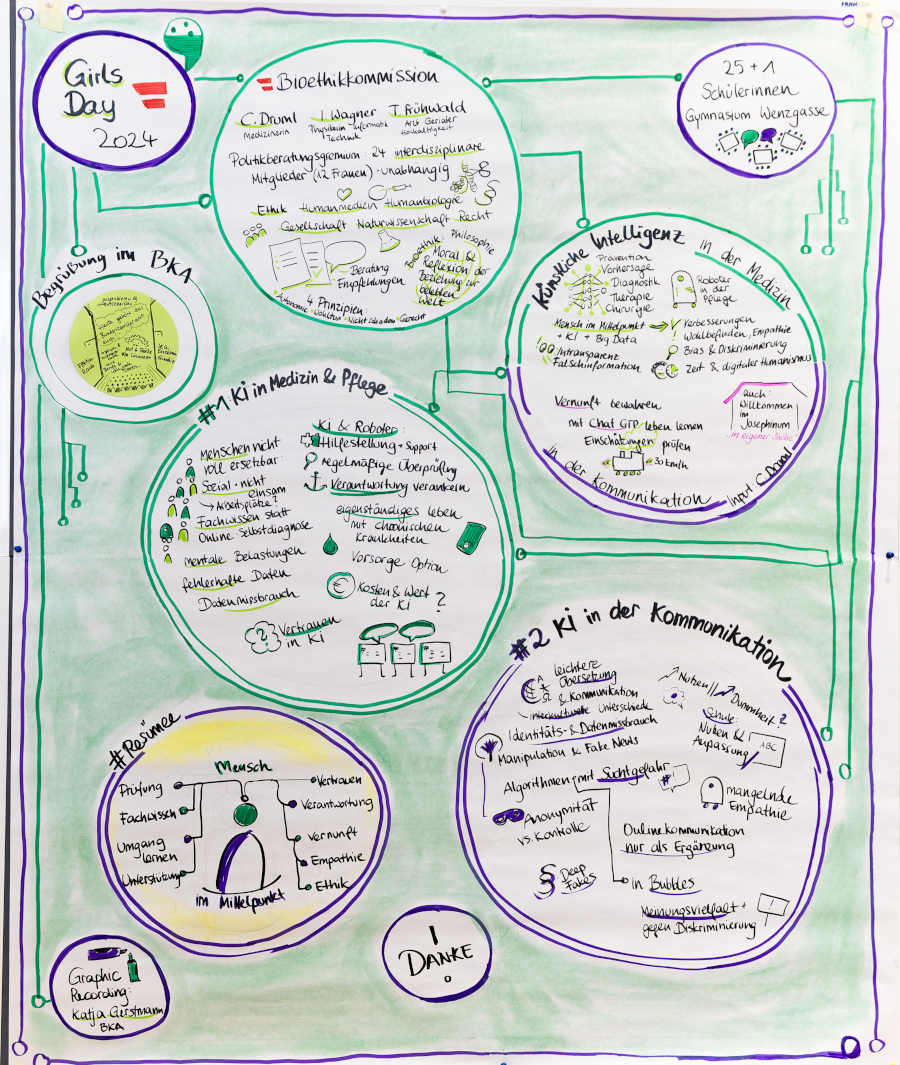 Girls
Day
2024
Bioethikkommission
C. Druml
Medizinerin
I. Wagner
Physikerin Informatik
Technik
T. Frühwald
Arzt Geriater
Politikberatungsgremium · 24 interdisziplinäre
Mitglieder (12 Frauen) · unabhängig
Ethik Humanmedizin Humanbiologie
Gesellschaft Naturwissenschaft Recht
Philosophie
Beratung
Empfehlungen
Bioethik:
Moral &
Reflexion der
Beziehung zur
belebten
Welt
4 Prinzipien
Autonomie · Wohltun · Nicht schaden · Gerecht
25 + 1
Schülerinnen
Gymnasium Wenzgasse
Begrüßung im BKA
Künstliche Intelligenz in der Medizin
Prävention
Vorhersage
Diagnostik
Therapie
Chirurgie
Roboter
in der
Pflege
Mensch im Mittelpunkt
+ KI + Big Data
Intransparenz
Falschinformation
Verbesserungen
Wohlbefinden, Empathie
Bias & Diskriminierung
Zeit & digitaler Humanismus
Vernunft bewahren
mit Chat GTP leben lernen
Einschätzungen prüfen
30 km/h
auch:
Willkommen
im
Josephinum
in der Kommunikation
Input C. Druml
#1 KI in Medizin & Pflege
Menschen nicht
voll ersetzbar:
Sozial · nicht
einsam
Arbeitsplätze?
Fachwissen statt
Online Selbstdiagnose
mentale Belastungen
fehlerhafte Daten
Datenmissbrauch
Vertrauen
in KI
KI & Roboter:
Hilfestellung + Support
regelmäßige Überprüfung
Verantwortung verankern
eigenständiges leben
mit chronischen
Krankheiten
Vorsorge Option
Kosten & Wert
der KI ?
#2 KI in der Kommunikation
leichtere
Übersetzung
& Kommunikation
interkulturelle Unterschiede
Identitäts- & Datenmissbrauch
Manipulation & Fake News
Algorithmen mit Suchtgefahr
Anonymität
vs. Kontrolle
§ Deep
Fakes
Nutzen // Dummheit?
Schule:
Nutzen &
Anpassung
ABC
mangelnde
Empathie
Onlinekommunikation
nur als Ergänzung
in Bubbles
Meinungsvielfalt +
gegen Diskriminierung
#Resümee
Mensch
Prüfung
Fachwissen
Umgang
lernen
Unterstützung
Vertrauen
Verantwortung
Vernunft
Empathie
Ethik
im Mittelpunkt
DANKE
!
Graphic
Recording:
Katja Gerstmann
BKA